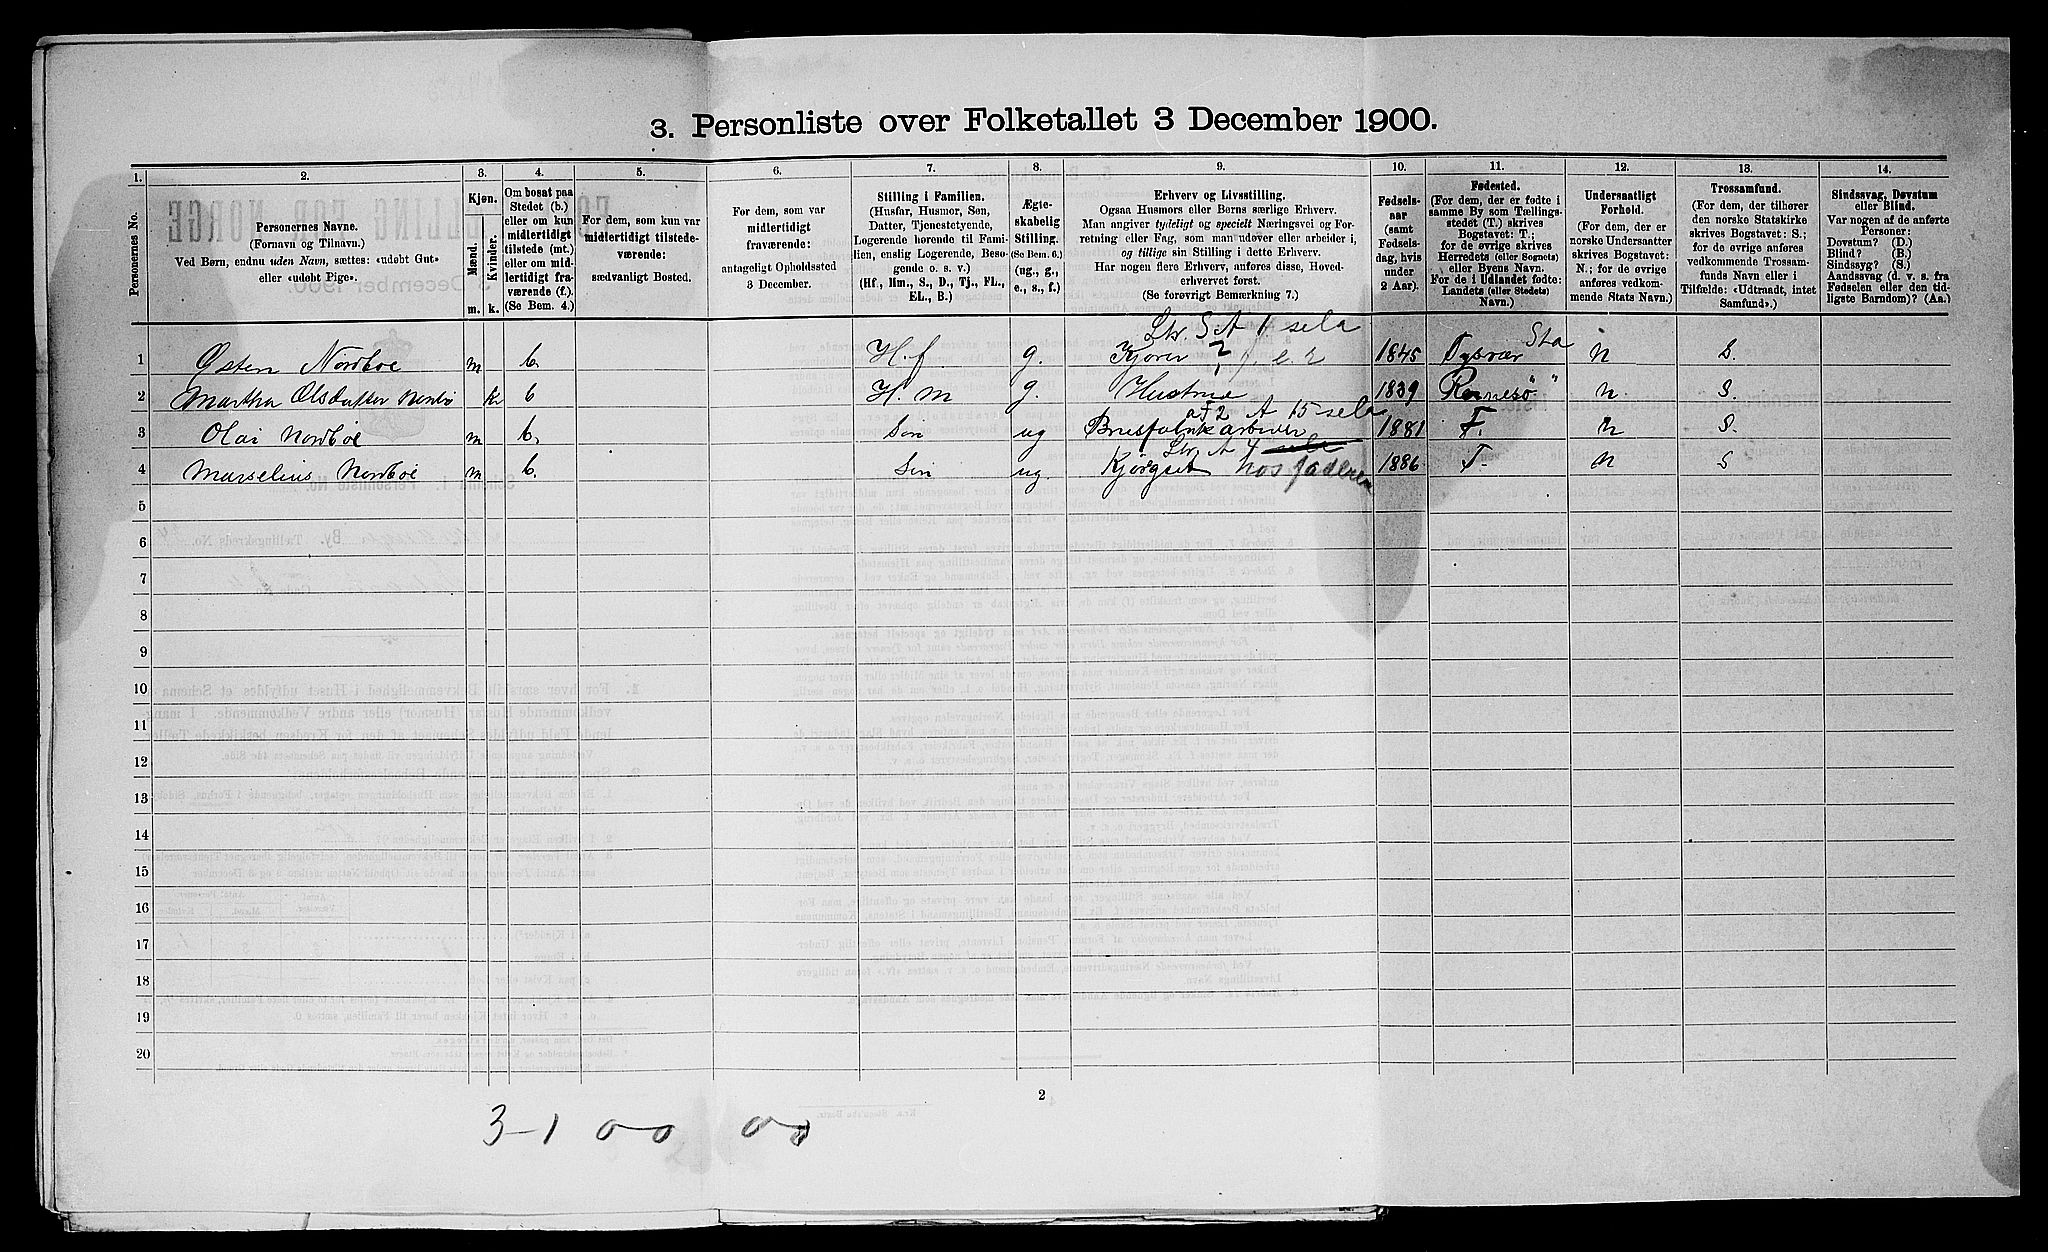 3. Personliste over Folketallet 3 December 1900.
1. 2. 3. 4. 5. 6. 7. 8. 9. 10. 11. 12. 13. 14.
Personernes No.
Personernes Navne.
(Fornavn og Tilnavn.)
Ved Børn, endnu uden Navn, sættes: «udøbt Gut»
eller «udøbt Pige».
Kjøn.
Mænd.
Kvinder.
m. k.
Om bosat paa
Stedet (b.)
eller om kun
midlertidigt
tilstede (mt.)
eller om mid-
lertidigt fra-
værende (f.).
(Se Bem. 4.)
For dem, som kun var
midlertidigt tilstede-
værende:
sædvanligt Bosted.
For dem, som var
midlertidigt
fraværende:
antageligt Opholdssted
3 December.
Stilling i Familien.
(Husfar, Husmor, Søn,
Datter, Tjenestetyende,
Logerende hørende til Fami-
lien, enslig Logerende, Besø-
gende o. s. v.)
(Hf., Hm., S., D., Tj., FL.,
EL., B.)
Ægte-
skabelig
Stilling.
(Se Bem. 6.)
(ug., g.,
e., s., f.)
Erhverv og Livsstilling.
Ogsaa Husmors eller Børns særlige Erhverv.
Man angiver tydeligt og specielt Næringsvei og For-
retning eller Fag, som man udøver eller arbeider i,
og tillige sin Stilling i dette Erhverv.
Har nogen flere Erhverv, anføres disse, Hoved-
erhvervet først.
(Se forøvrigt Bemærkning 7.)
Fødsels-
aar
(samt
Fødsels-
dag, hvis
under
2 Aar).
Fødested.
(For dem, der er fødte i
samme By som Tællings-
stedet (T.) skrives
Bogstavet: T.;
for de øvrige skrives
Herredets (eller Sognets)
eller Byens Navn.
For de i Udlandet fødte:
Landets (eller Stedets)
Navn.)
Undersaatligt
Forhold.
(For dem, der er
norske Undersaatter
skrives Bogstavet:
N.; for de øvrige
anføres vedkom-
mende Stats Navn.)
Trossamfund.
(For dem, der tilhører
den norske Statskirke
skrives Bogstavet: S.;
for de øvrige anføres
vedkommende Trossam-
funds Navn eller i
Tilfælde: «Udtraadt, intet
Samfund».)
Sindssvag, Døvstum
eller Blind.
Var nogen af de anførte
Personer:
Døvstum? (D.)
Blind? (B.)
Sindssyg? (S.)
Aandssvag (d. v. s. fra
Fødselen eller den tid-
ligste Barndom)? (Aa.)
Ltr. S A 1 sela
1 Østen Nordboe m b. H. f g. Kjører 1845 Tysvær Sta n S.
2 Martha Olsdatter Nordbø k b H. m g. Hustrue 1839 Rennesø " n. S.
af 2 A 15 sela
3 Olai Nordboe m b. Søn ug Brusfabrikarbeider 1881 T. n S.
Ltr. A 4
4 Marselius Nordboe m b. Søn ug. Kjørgut hos faderen 1886 T. n S
5
6
7
8
9
10
11
12
13
14
15
16
17
18
19
20
2
3-1 00 00